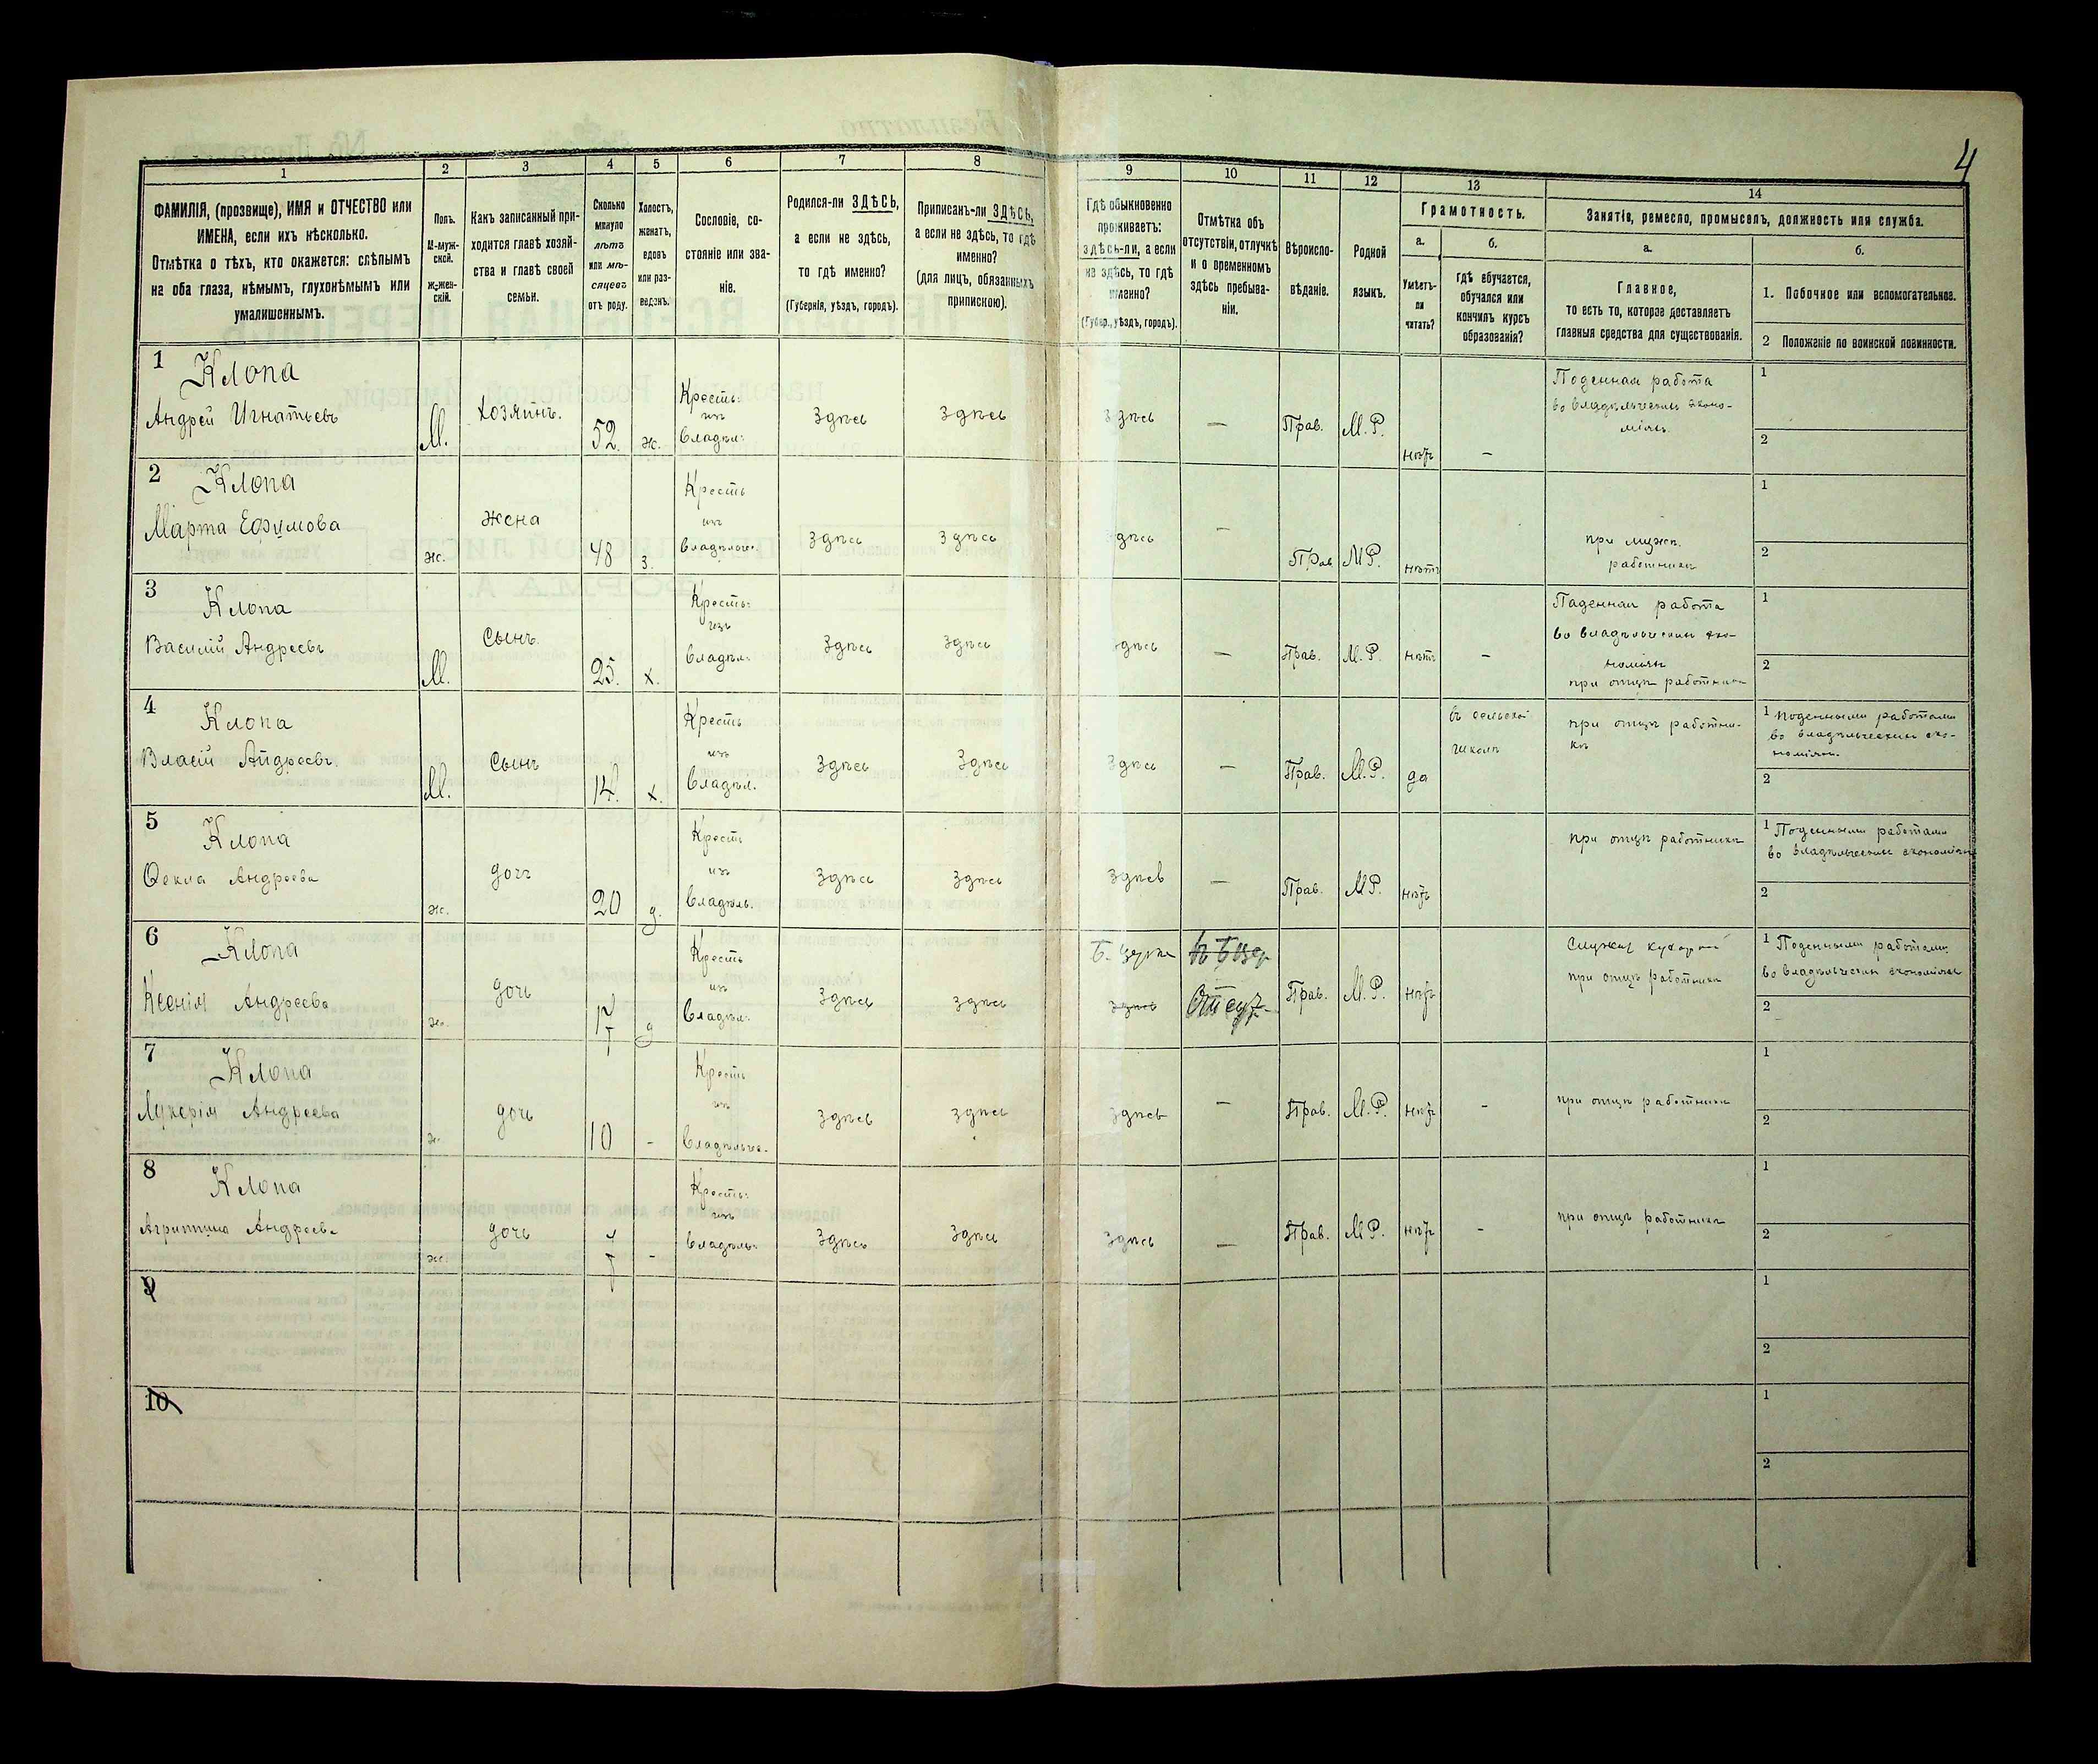 4
1 2 3 4 5 6 7 8 9 10 11 12 13 14
ФАМИЛІЯ, (прозвище), ИМЯ и ОТЧЕСТВО или
ИМЕНА, если ихъ нѣсколько.
Отмѣтка о тѣхъ, кто окажется: слѣпымъ
на оба глаза, нѣмымъ, глухонѣмымъ или
умалишеннымъ.
Полъ.
М-муж-
ской.
Ж-жен-
скій.
Какъ записанный при-
ходится главѣ хозяй-
ства и главѣ своей
семьи.
Сколько
минуло
лѣтъ
или мѣ-
сяцевъ
отъ роду.
Холостъ,
женатъ,
вдовъ
или раз-
веденъ.
Сословіе, со-
стояніе или зва-
ніе.
Родился-ли ЗДѢСЬ,
а если не здѣсь,
то гдѣ именно?
(Губернія, уѣздъ, городъ).
Приписанъ-ли ЗДѢСЬ,
а если не здѣсь, то гдѣ
именно?
(для лицъ, обязанныхъ
припискою).
Гдѣ обыкновенно
проживаетъ:
здѣсь-ли, а если
не здѣсь, то гдѣ
именно?
(Губер., уѣздъ, городъ).
Отмѣтка объ
отсутствіи, отлучкѣ
и о временномъ
здѣсь пребыва-
ніи.
Вѣроиспо-
вѣданіе.
Родной
языкъ.
Грамотность.
а.
Умѣетъ-
ли
читать?
б.
гдѣ обучается,
обучался или
кончилъ курсъ
образованія?
Занятія, ремесло, промыселъ, должность или служба.
а.
Главное,
то есть то, которое доставляетъ
главныя средства для существованія.
б.
1. Побочное или вспомогательное.
2 Положеніе по воинской повинности.
1 Клопа
Андрей Игнатьевъ
М.
Хозяинъ.
52.
ж.
Кресть:
изъ
владѣл:
Здѣсь
Здѣсь
Здѣсь
—
Прав.
М. Р.
нѣтъ
–
Поденная работа
во владѣльческихъ эконо-
міяхъ
1
2
2 Клопа
Марта Ефимова
ж.
Жена
48
з.
Кресть
изъ
владѣльч.
Здѣсь
Здѣсь
Здѣсь
—
Прав
М Р.
нѣтъ
при мужѣ
работникѣ
1
2
3 Клопа
Василій Андреевъ
М.
Сынъ.
25.
х.
Кресть:
изъ
владѣл:
Здѣсь
Здѣсь
Здѣсь
—
Прав.
М. Р.
нѣтъ
–
Паденная работа
во владѣльческихъ эко-
номіяхъ
при отцѣ работникѣ
1
2
4 Клопа
Власій Андреевъ.
М.
Сынъ
14.
х.
Кресть
изъ
владѣл.
Здѣсь
Здѣсь
Здѣсь
—
Прав.
М. Р.
да
въ сельской
школѣ
при отцѣ работни-
кѣ
1 поденными работами
во владѣльческихъ эко-
номіяхъ.
2
5 Клопа
Ѳекла Андреева
ж.
дочь
20
д.
Кресть
изъ
владѣль.
Здѣсь
Здѣсь
Здѣсь
—
Прав.
М Р.
нѣтъ
при отцѣ работникѣ
1 Поденными работами
во владѣльческихъ экономіяхъ
2
6 Клопа
Ксенія Андреева
ж.
дочь
17
д
Кресть
изъ
владѣл:
Здѣсь
Здѣсь
Б. Церкв
здѣсь
въ Б Цер
Отсут.
Прав.
М. Р.
нѣтъ
Служит кухаркой
при отцѣ работникѣ
1 Поденными работами
во владѣльческихъ экономіяхъ
2
7 Клопа
Лукерія Андреева
ж.
дочь
10
-
Кресть
изъ
владѣльче.
Здѣсь
Здѣсь
Здѣсь
—
Прав.
М. Р.
нѣтъ
–
при отцѣ работникѣ
1
2
8 Клопа
Агрипина Андреева
ж.
дочь
-
Кресть:
изъ
владѣль:
Здѣсь
Здѣсь
Здѣсь
—
Прав.
М Р.
нѣтъ
–
при отцѣ работникѣ
1
2
9
1
2
10
1
2